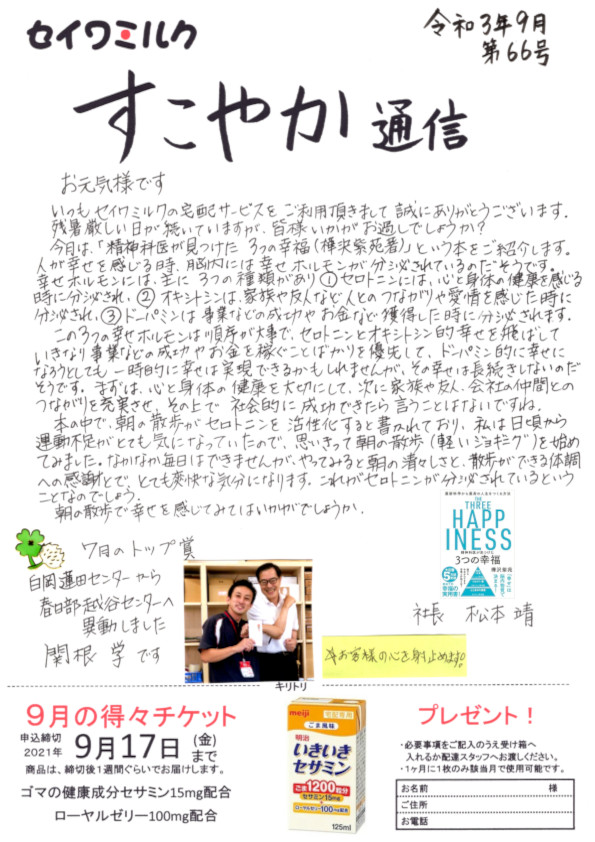 セイワミルク
令和3年9月
第66号
すこやか通信
お元気様です
いつもセイワミルクの宅配サービスをご利用頂きまして誠にありがとうございます。
残暑厳しい日が続いていますが、皆様いかがお過しでしょうか?
今日は、「精神科医が見つけた 3つの幸福(樺沢紫苑著)」という本をご紹介します。
人が幸せを感じる時、脳内には幸せホルモンが分泌されているのだそうです。
幸せホルモンには、主に3つの種類があり①セロトニンには、心と身体の健康を感じる
時に分泌され、②オキシトシンは、家族や友人など人とのつながりや愛情を感じた時に
分泌され、③ドーパミンは事業などの成功やお金など獲得した時に分泌されます。
この3つの幸せホルモンは順序が大事で、セロトニンとオキシトシン的幸せを飛ばして
いきなり事業などの成功やお金を稼ぐことばかりを優先して、ドーパミン的に幸せに
なろうとしても一時的に幸せは実現できるかもしれませんが、その幸せは長続きしないのだ
そうです。まずは、心と身体の健康を大切にして、次に家族や友人、会社の仲間との
つながりを充実させ、その上で社会的に成功できたら言うことはないですね。
本の中で、朝の散歩がセロトニンを活性化すると書かれており、私は日頃から
運動不足がとても気になっていたので、思いきって朝の散歩(軽いジョギング)を始め
てみました。なかなか毎日はできませんが、やってみると朝の清々しさと、散歩ができる体調
への感謝とで、とても爽快な気分になります。これがセロトニンが分泌されているという
ことなのでしょう。
朝の散歩で幸せを感じてみてはいかがでしょうか。
THE
THREE
HAPP
INESS
精神科医が見つけた
3つの幸福
樺沢紫苑
7月のトップ賞
白岡蓮田センターから
春日部越谷センターへ
異動しました
関根 学です
社長 松本 靖
お客様の心を射止めます!
キリトリ
9月の得々チケット
申込締切
2021年 9月17日(金)まで
商品は、締切後1週間ぐらいでお届けします。
ゴマの健康成分セサミン15mg配合
ローヤルゼリー100mg配合
meiji
宅配専用
ごま風味
明治
いきいき
セサミン
ごま1200粒分
セサミン15mg
ローヤルゼリー100mg配合
125ml
プレゼント!
・必要事項をご記入のうえ受け箱へ
入れるか配達スタッフへお渡しください。
・1ヶ月に1枚のみ該当月で使用可能です。
お名前 様
ご住所
お電話